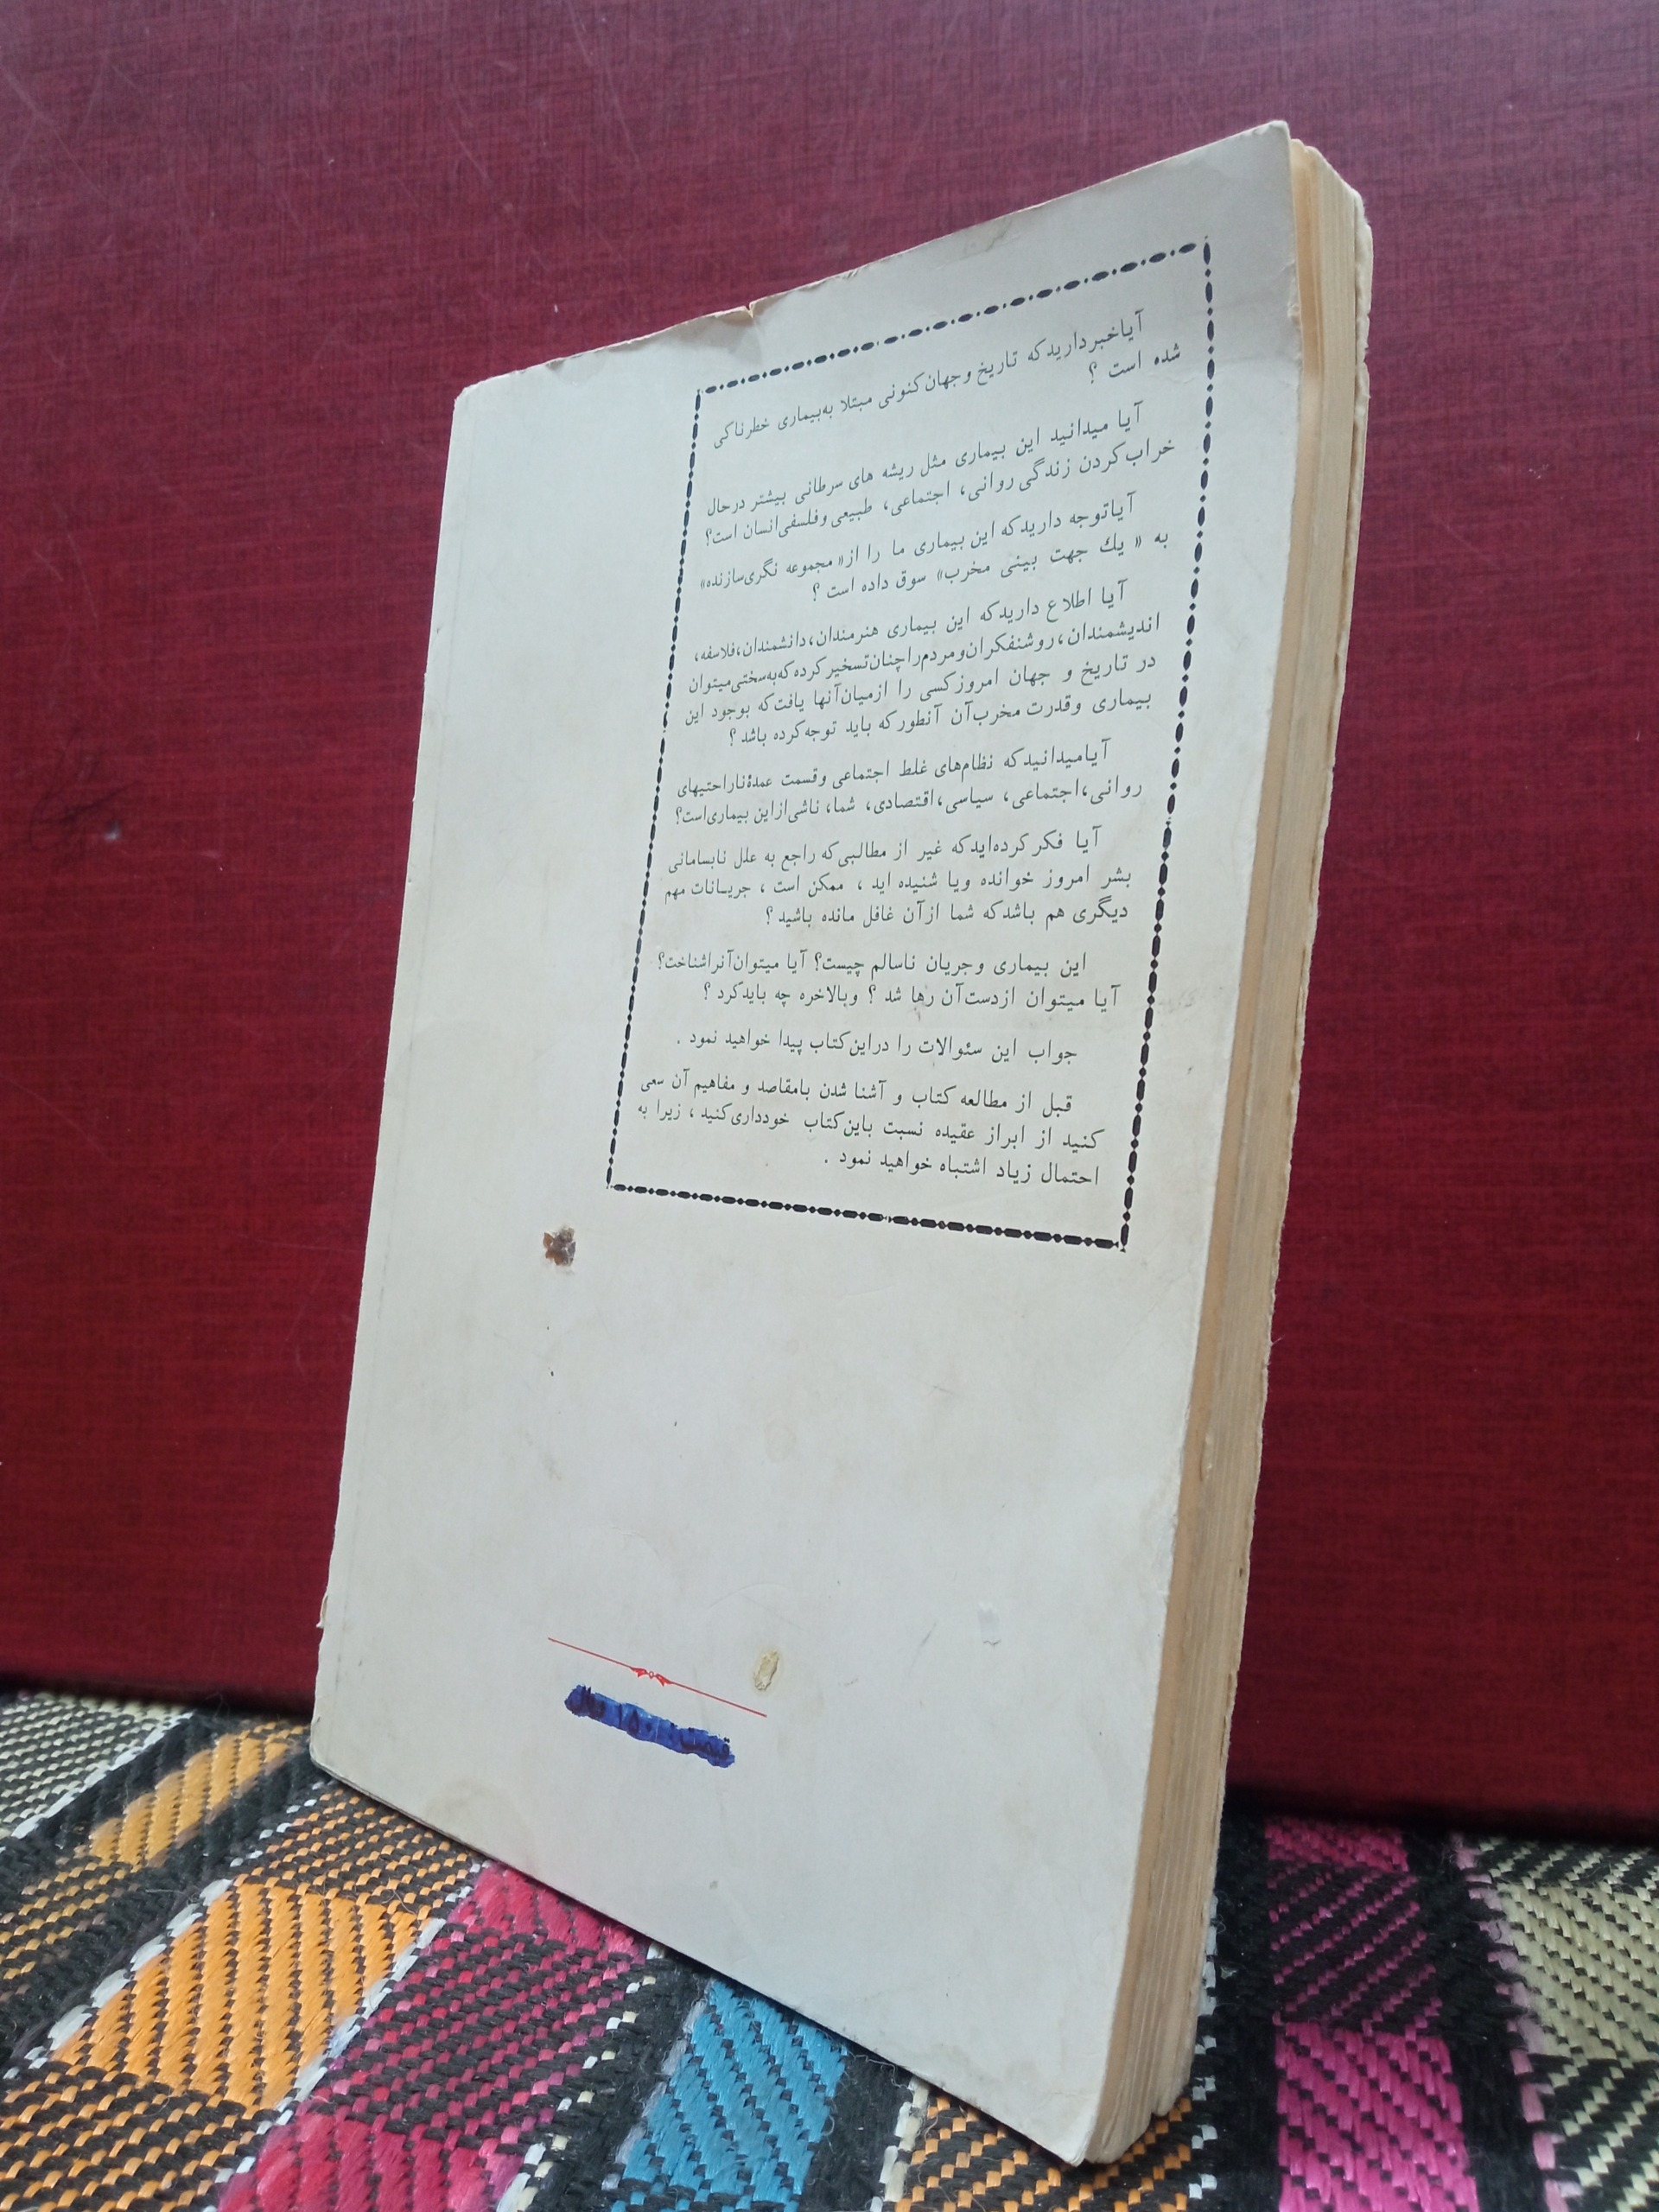 آیا خبر دارید که تاریخ و جهان کنونی مبتلا به بیماری خطرناکی
شده است ؟
آیا میدانید این بیماری مثل ریشه های سرطانی بیشتر درحال
خراب کردن زندگی روانی، اجتماعی، طبیعی و فلسفی انسان است؟
آیا توجه دارید که این بیماری ما را از «مجموعه نگری سازنده»
به « یك جهت بینی مخرب» سوق داده است ؟
آیا اطلاع دارید که این بیماری هنرمندان، دانشمندان، فلاسفه،
اندیشمندان، روشنفکران و مردم را چنان تسخیر کرده که به سختی میتوان
در تاریخ و جهان امروز کسی را از میان آنها یافت که بوجود این
بیماری و قدرت مخرب آن آنطور که باید توجه کرده باشد ؟
آیا میدانید که نظام‌های غلط اجتماعی و قسمت عمدهٔ ناراحتیهای
روانی، اجتماعی، سیاسی، اقتصادی، شما، ناشی از این بیماری است؟
آیا فکر کرده‌اید که غیر از مطالبی که راجع به علل نابسامانی
بشر امروز خوانده ویا شنیده اید ، ممکن است ، جریانات مهم
دیگری هم باشد که شما از آن غافل مانده باشید ؟
این بیماری و جریان ناسالم چیست؟ آیا میتوان آنرا شناخت؟
آیا میتوان از دست آن رها شد ؟ وبالاخره چه باید کرد ؟
جواب این سئوالات را دراین کتاب پیدا خواهید نمود .
قبل از مطالعه کتاب و آشنا شدن بامقاصد و مفاهیم آن سعی
کنید از ابراز عقیده نسبت باین کتاب خودداری کنید ، زیرا به
احتمال زیاد اشتباه خواهید نمود .